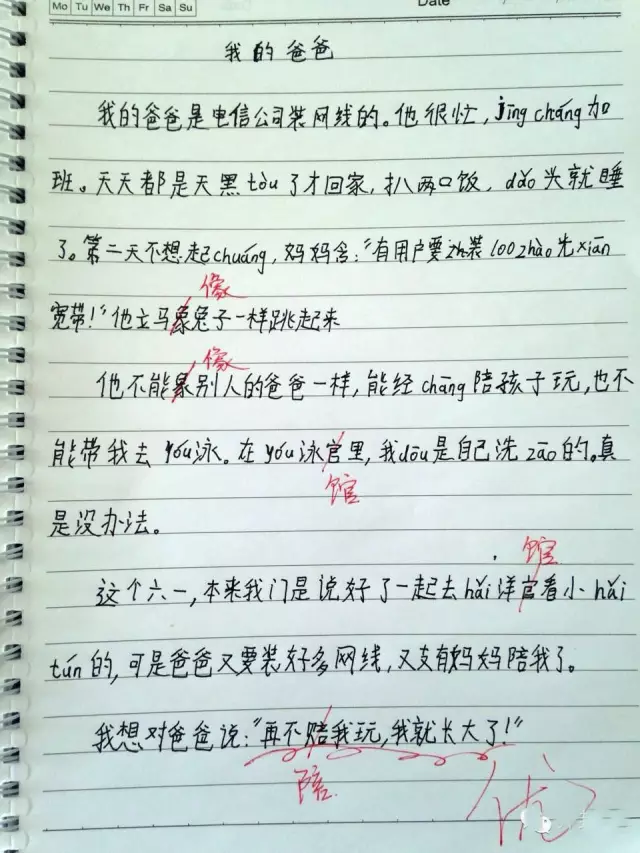 Mo Tu We Th Fr Sa Su
Date
我的爸爸
我的爸爸是电信公司装网线的。他很忙，jīng cháng加
班。天天都是天黑tòu了才回家，扒两口饭，dǎo头就睡
了。第二天不想起chuáng，妈妈含："有用户要zh装100zhào光xiān
像
宽带！"他立马象兔子一样跳起来
像
他不能象别人的爸爸一样，能经chāng陪孩子玩，也不
能带我去yóu泳。在yóu泳官里，我dōu是自己洗zǎo的。真
馆
是没办法。
馆
这个六一，本来我门是说好了一起去hǎi洋官看小hǎi
tún的，可是爸爸又要装好多网线，又支有妈妈陪我了。
我想对爸爸说："再不赔我玩，我就长大了！"
陪
优